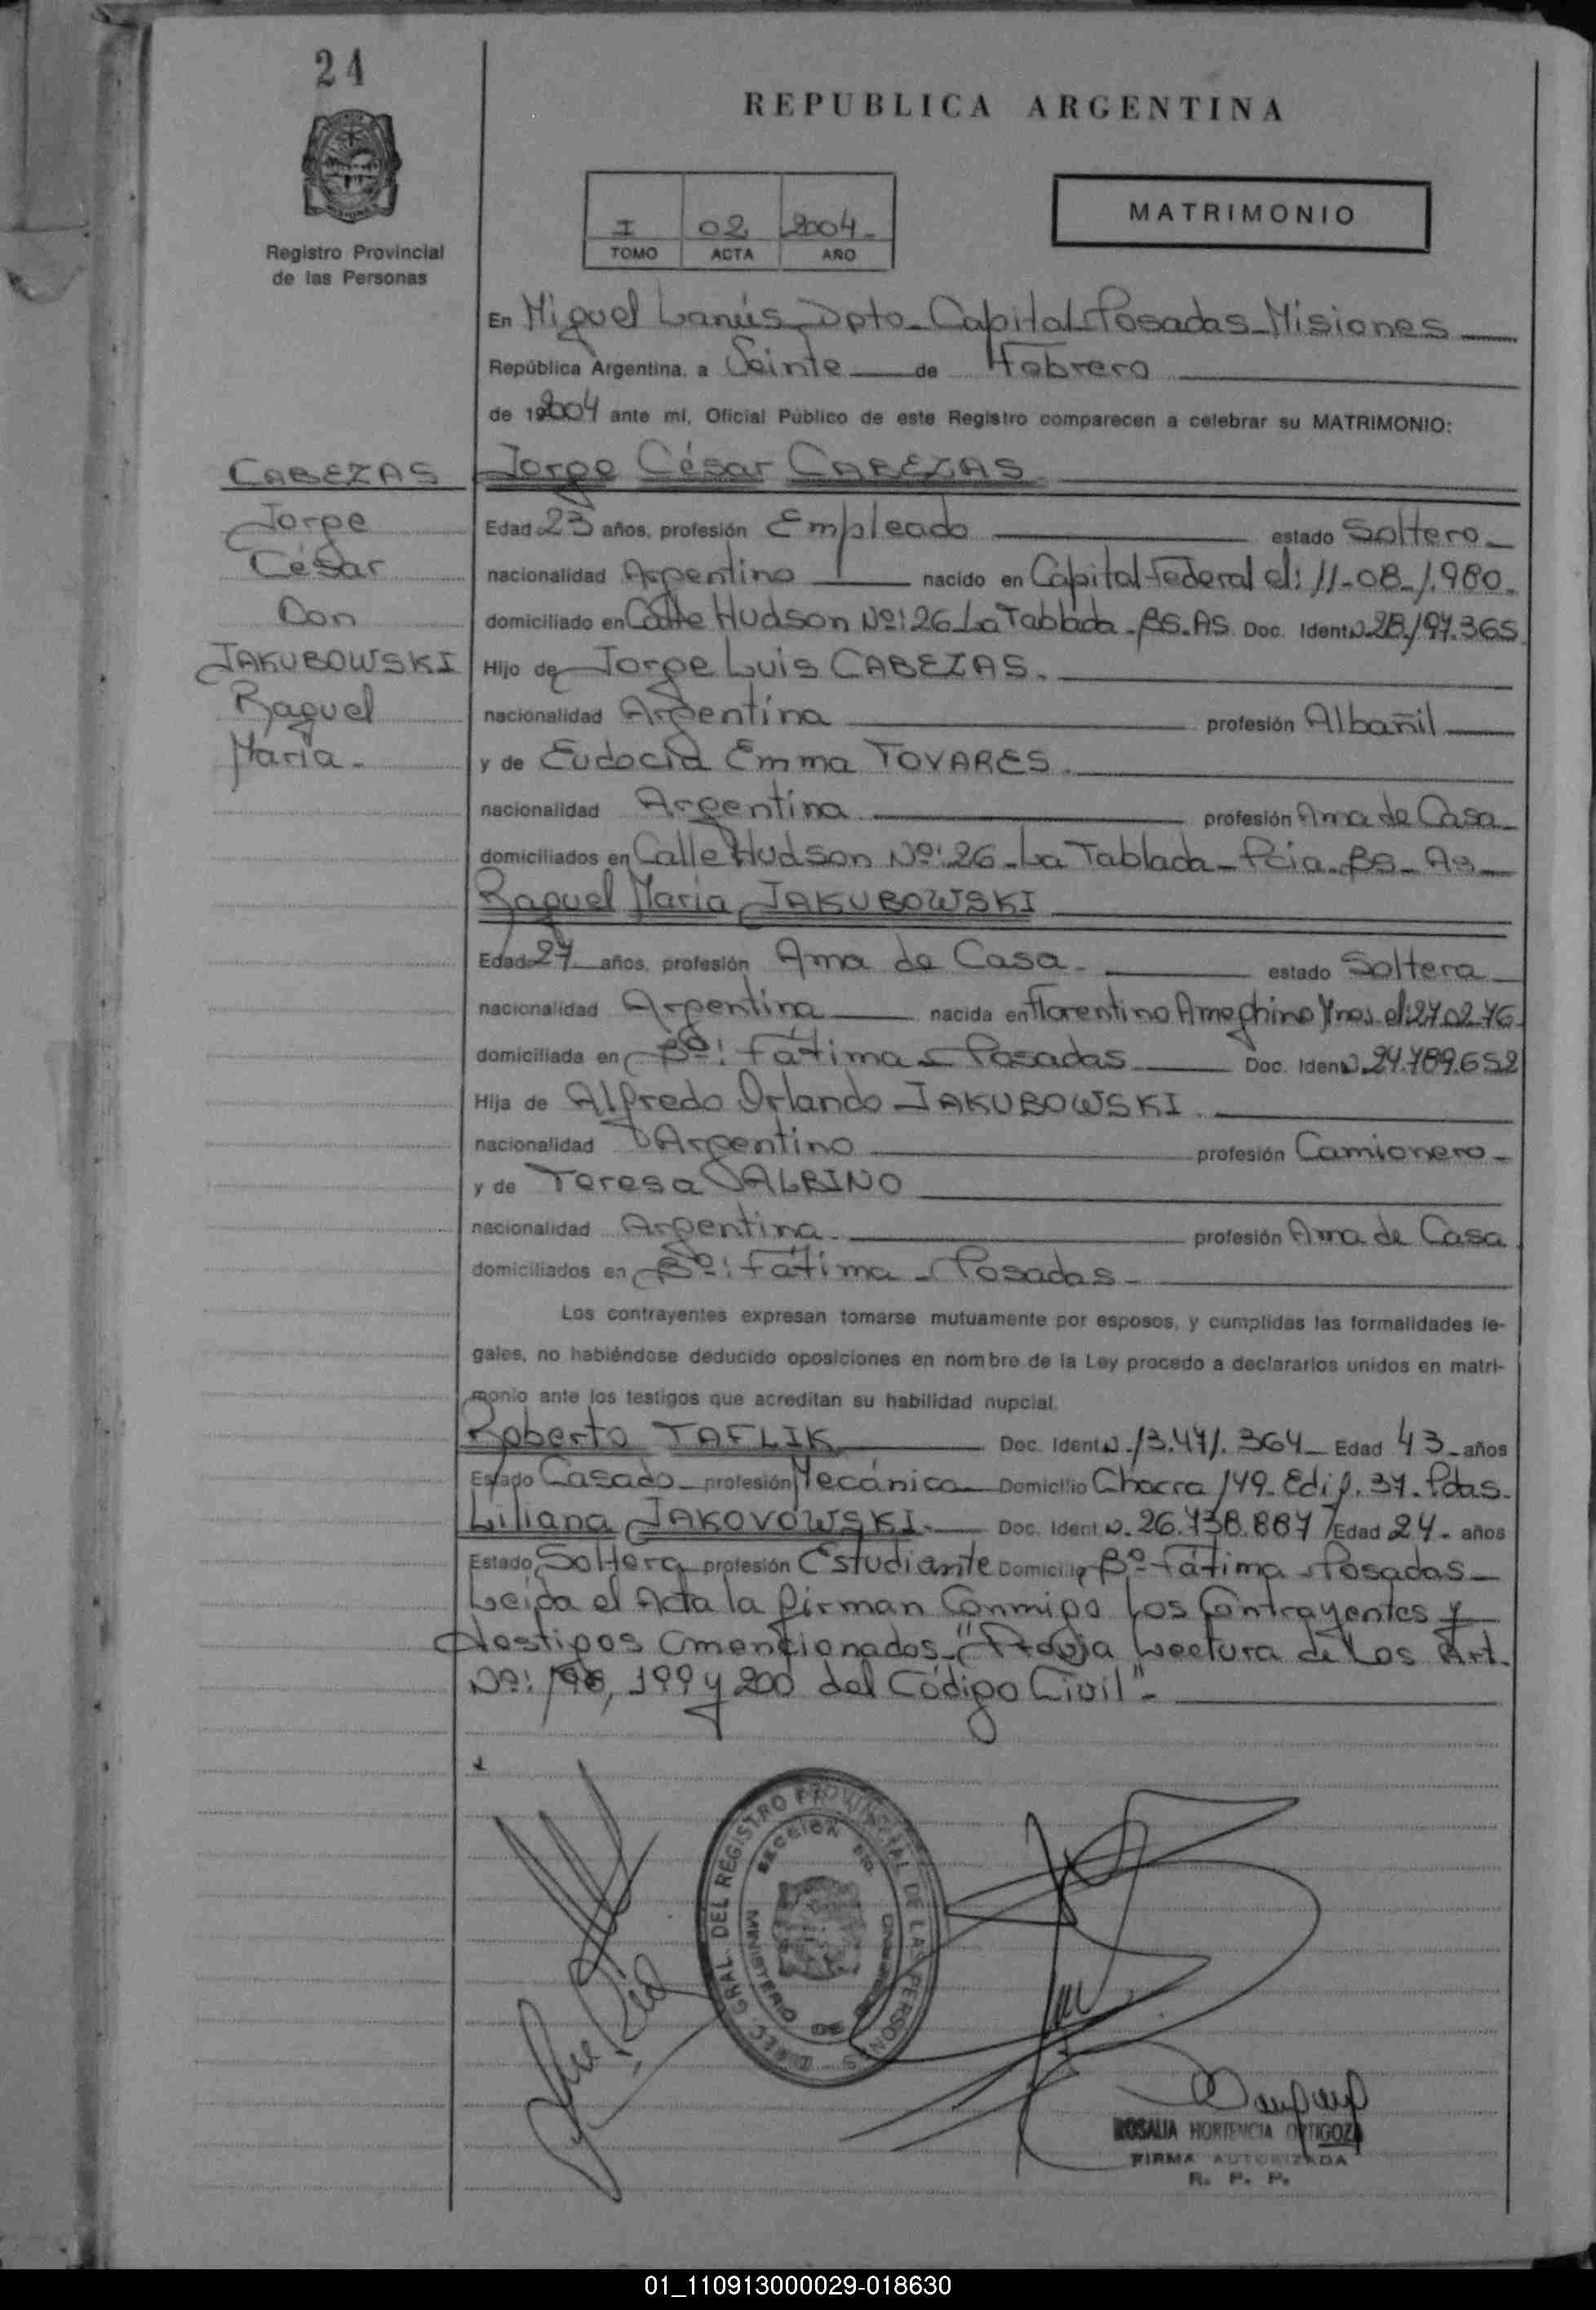 24
REPUBLICA ARGENTINA
I 02 2004-
TOMO ACTA AÑO
MATRIMONIO
Registro Provincial
de las Personas
En Miguel Lanús - Dpto - Capital - Posadas - Misiones
República Argentina, a Veinte de Febrero
de 192004 ante mí, Oficial Público de este Registro comparecen a celebrar su MATRIMONIO:
CABEZAS
Jorge
César
Con
JAKUBOWSKI
Raquel
María -
Jorge César CABEZAS
Edad 23 años, profesión Empleado estado Soltero -
nacionalidad Argentino nacido en Capital Federal el: 11-08-1.980.
domiciliado en Calle Hudson Nº: 26 - La Tablada - BS. AS. Doc. Ident. N. 28.197.365
Hijo de Jorge Luis CABEZAS.
nacionalidad Argentina profesión Albañil
y de Eudocia Emma TOVARES.
nacionalidad Argentina profesión Ama de Casa -
domiciliados en Calle Hudson Nº: 26 - La Tablada - Pcia. BS - As -
Raquel María JAKUBOWSKI
Edad 27 años, profesión Ama de Casa - estado Soltera
nacionalidad Argentina nacida en Florentino Ameghino Mnes. el: 27.02.76
domiciliada en Bº: Fátima - Posadas Doc. Ident. N. 24.789.652
Hija de Alfredo Orlando JAKUBOWSKI.
nacionalidad Argentino profesión Camionero -
y de Teresa ALBINO
nacionalidad Argentina - profesión Ama de Casa
domiciliados en Bº: Fátima - Posadas -
Los contrayentes expresan tomarse mutuamente por esposos, y cumplidas las formalidades le-
gales, no habiéndose deducido oposiciones en nombre de la Ley procedo a declararlos unidos en matri-
monio ante los testigos que acreditan su habilidad nupcial.
Roberto TAFLIK Doc. Ident. N. 13.471.364 - Edad 43 - años
Estado Casado - profesión Mecánico - Domicilio Chacra 149 - Edif. 37. Pdas.
Liliana JAKOVOWSKI - Doc. Ident. N. 26.738.887 Edad 24 - años
Estado Soltera profesión Estudiante Domicilio Bº - Fátima - Posadas -
Leída el Acta la firman Conmigo los Contrayentes y
testigos mencionados - "Previa Lectura de Los Art.
Nº: 198, 199 y 200 del Código Civil" -
DIREC. GRAL. DEL REGISTRO PROVINCIAL DE LAS PERSONAS
MINISTERIO DE
ROSALIA HORTENCIA ORTIGOZA
FIRMA AUTORIZADA
R. P. P.
01_110913000029-018630